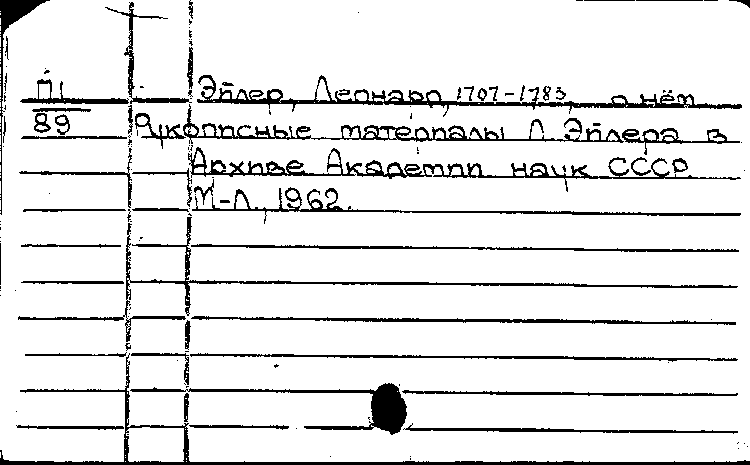 П1
89
Эйлер, Леонард, 1707-1783, о нём
Рукописные материалы Л. Эйлера в
Архиве Академии наук СССР.
М.-Л., 1962.